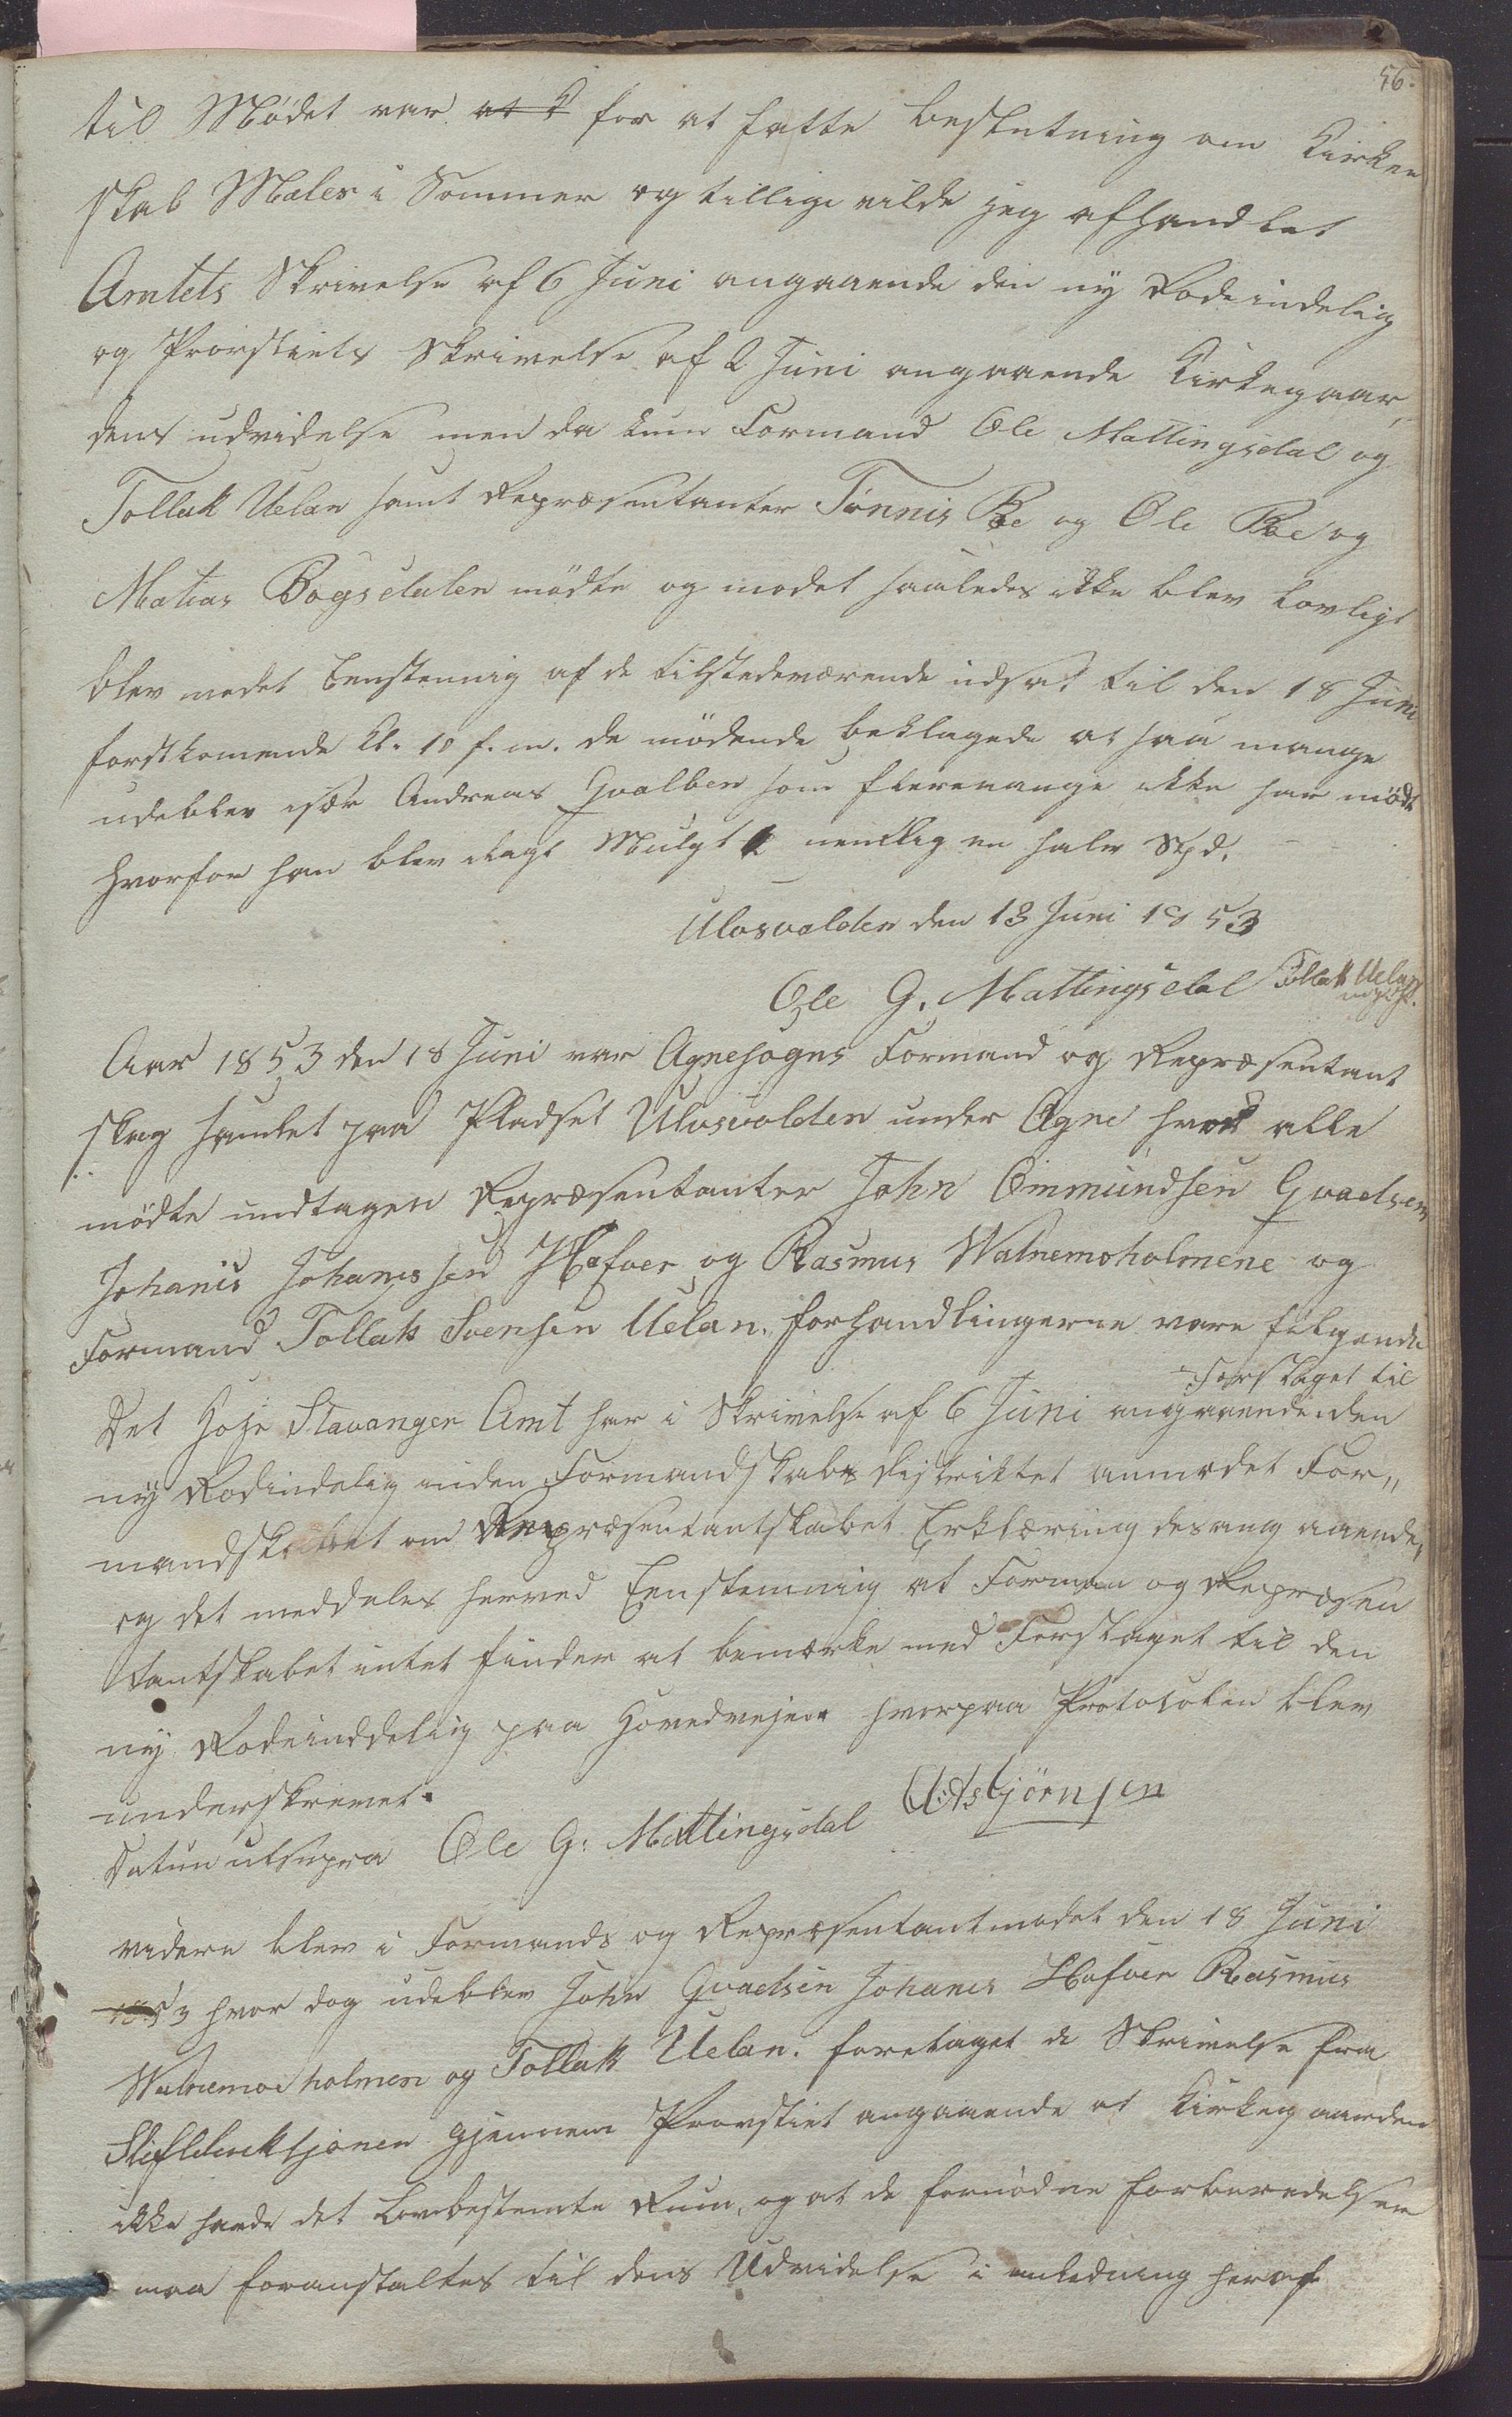 56.
til Mødet var at for at fatte beslutning om Kirken
skal Males i Sommer og tillige vilde jeg afhandlet
Amtets Skrivelse af 6 Juni angaaende den ny Rodeindelig
og Provstiets Skrivelse af 2 Juni angaaende Kirkegaar
dens udvidelse men da kun Formand Ole Mattingsdal og
Tollak Uelan samt Repræsentanter Tønnis Bøe og Ole Bøe og
Matias Bogsdalen mødte og modet saaledes ikke blev lovligt
blev modet Eenstemig af de tilstedeværende udsat til den 18 Juni
førstkomende Kl. 10 f. m. de mødende beklagede at saa mange
udeblev især Andreas Qvalben som fleremange ikke har mødt
hvorfor han blev ilagt Mulgt nemllig en halv Spd.
Ulvsvolden den 13 Juni 1853
Ole G. Mattingsdal Tollak Uelan
m. p. P.
Aar 1853 den 18 Juni var Agnesogns Formand og Repræsentant
skap samlet paa Pladset Ulvsvolden under Ogne hvor alle
mødte undtagen Repræsentanter John Ommundsen Qvadsem
Johanis Johannessen Hafver og Rasmus Watnemoholmene og
Formand Tollak Svensen Uelan. Forhandlingerne vare følgende
Forslaget til
Det Høie Stavanger Amt har i Skrivelse af 6 Juni angaaende den
ny Rodindelig inden Formandskabs distriktet anmodet For„
mandskabet om Repræsentantskabet Erklæring desangaaende,
og det meddeles herved Eenstemmig at Forman og Repræsen
tantskabet intet finder at bemærke med Forslaget til den
ny Rodeinddelig paa Hovedveien hvorpaa Protokolen blev
underskrevet.
Datum utsupra Ole G: Mattingsdal A: Asbjörnsen
videre blev i Formands og Repræsentantmødet den 18 Juni
1853 hvor dog udeblev John Qvadsin Johanes Hafver Rasmus
Watnemoe holmen og Tollak Uelan. foretaget de Skrivelse fra
Stiftderektjonen gjennem Provstiet angaaende at Kirkegaarden
ikke havde det Lovbestemte Rum, og at de fornødne forberedelser
maa foranstaltes til dens Udvidelse i anledning heraf